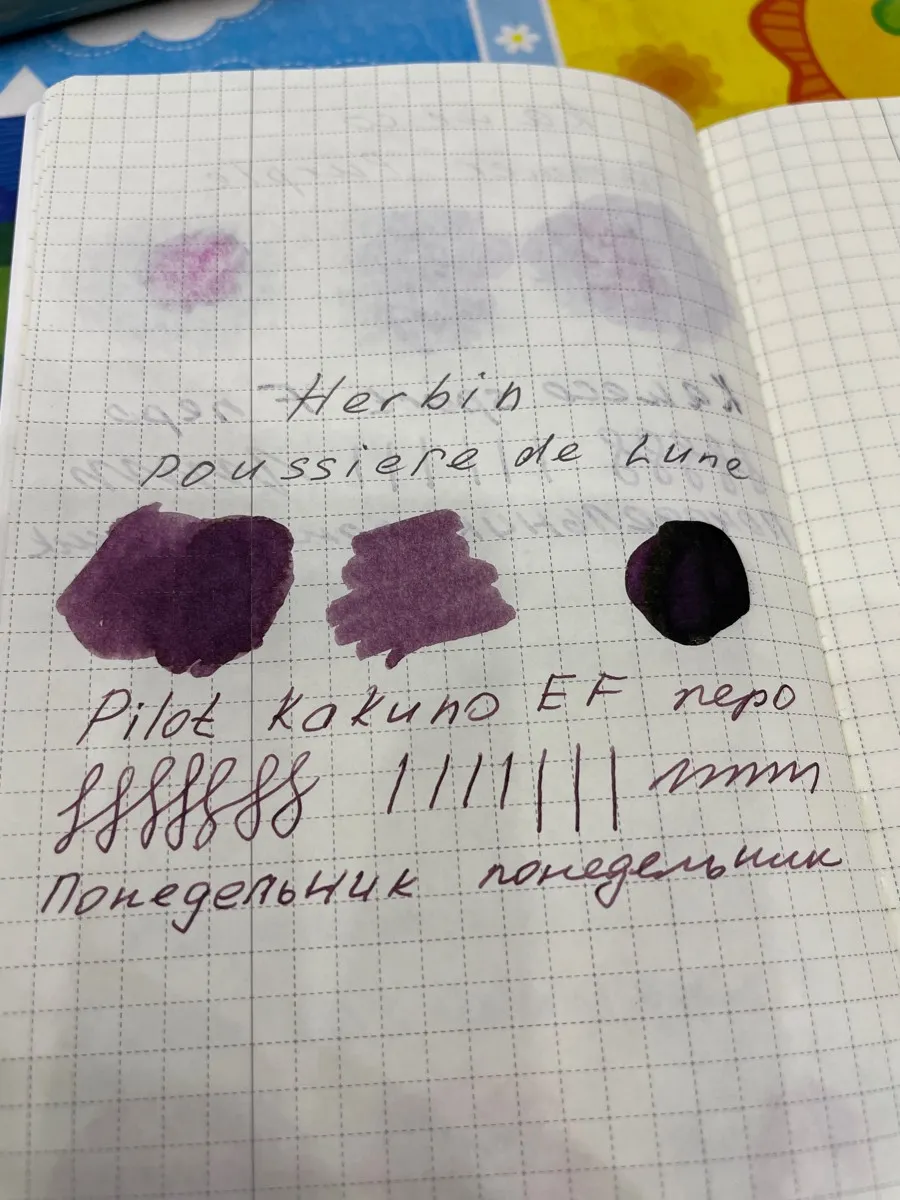 Herbin
Poussiere de Lune
Pilot Kakuno EF перо
Понедельник понедельник